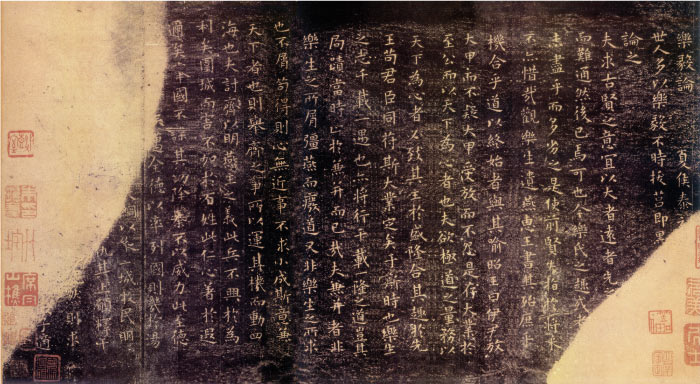 樂毅論 夏侯泰
世人多以樂毅不時拔莒即墨
論之
夫求古賢之意宜以大者遠者先
而難通然後已焉可也今樂氏之趣或者
未盡乎而多劣之是使前賢失指於將來
不亦惜哉觀樂生遺燕惠王書其殆庶乎
機合乎道以終始者與其喻昭王曰伊尹放
大甲而不疑大甲受放而不怨是存大業於
至公而以天下為心者也夫欲極道之量務以
天下為心者必致其主於盛隆合其趣於先
王苟君臣同符斯大業定矣于斯時也樂生
之志千載一遇也亦將行千載一隆之道豈其
局蹟當時止於兼并而已哉夫兼并者非
樂生之所屑彊燕而廢道又非樂生之所求
也不屑苟得則心無近事不求小成斯意兼
天下者也則舉齊之事所以運其機而動四
海也夫討齊以明燕主之義此兵不興於為
利矣圍城而害不加於百姓此仁心著於遐
邇矣舉國不謀其功除暴不以威力此至德
全德以率列國則幾於湯
綱以縱二城收民明
仇其上願釋干
則求
子適